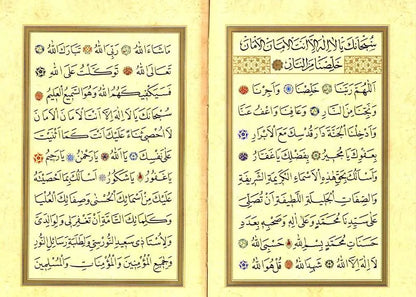 سُبْحَانَكَ يَا لَا إِلٰهَ إِلَّا أَنْتَ الْأَمَانُ الْأَمَانُ
خَلِّصْنَا مِنَ النَّارِ
اَللّٰهُمَّ رَبَّنَا خَلِّصْنَا وَأَجِرْنَا
وَنَجِّنَا مِنَ النَّارِ وَعَافِنَا وَاعْفُ عَنَّا
وَأَدْخِلْنَا الْجَنَّةَ دَارَ قُدْسِكَ مَعَ الْأَبْرَارِ
بِعَفْوِكَ يَا مُجِيرُ بِفَضْلِكَ يَا غَفَّارُ
وَأَسْأَلُكَ بِحَقِّ هٰذِهِ الْأَسْمَاءِ الْكَرِيمَةِ الشَّرِيفَةِ
وَالصِّفَاتِ الْجَلِيلَةِ اللَّطِيفَةِ أَنْ تُصَلِّيَ
عَلٰى سَيِّدِنَا مُحَمَّدٍ وَعَلٰى اٰلِهِ وَصَحْبِهِ بِعَدَدِ
حَسَنَاتِ مُحَمَّدٍ بِسْمِ اللّٰهِ حَسْبِيَ اللّٰهُ
لَا إِلٰهَ إِلَّا اللّٰهُ شَهِدَ اللّٰهُ قُلْ هُوَ اللّٰهُ
مَا شَاءَ اللّٰهُ رَبِّيَ اللّٰهُ تَبَارَكَ اللّٰهُ
تَعَالَى اللّٰهُ تَوَكَّلْتُ عَلَى اللّٰهِ
فَسَيَكْفِيكَهُمُ اللّٰهُ وَهُوَ السَّمِيعُ الْعَلِيمُ
سُبْحَانَكَ يَا لَا إِلٰهَ إِلَّا أَنْتَ الْأَمَانَ الْأَمَانَ
لَا أُحْصِي ثَنَاءً عَلَيْكَ أَنْتَ كَمَا أَثْنَيْتَ
عَلٰى نَفْسِكَ يَا اَللّٰهُ يَا رَحْمٰنُ يَا رَحِيمُ
يَا غَفُورُ يَا شَكُورُ أَسْأَلُكَ بِمَا أَحْصَيْتَهُ
عَلَيْكَ مِنْ أَسْمَائِكَ الْحُسْنٰى وَصِفَاتِكَ الْعُلْيَا
وَكَلِمَاتِكَ التَّامَّةِ أَنْ تَغْفِرَ لِي وَلِوَالِدَيَّ
وَلِأُسْتَاذِي سَعِيدِ النُّورْسِي وَلِطَلَبَةِ رَسَائِلِ النُّورِ
وَلِجَمِيعِ الْمُؤْمِنِينَ وَالْمُؤْمِنَاتِ وَالْمُسْلِمِينَ